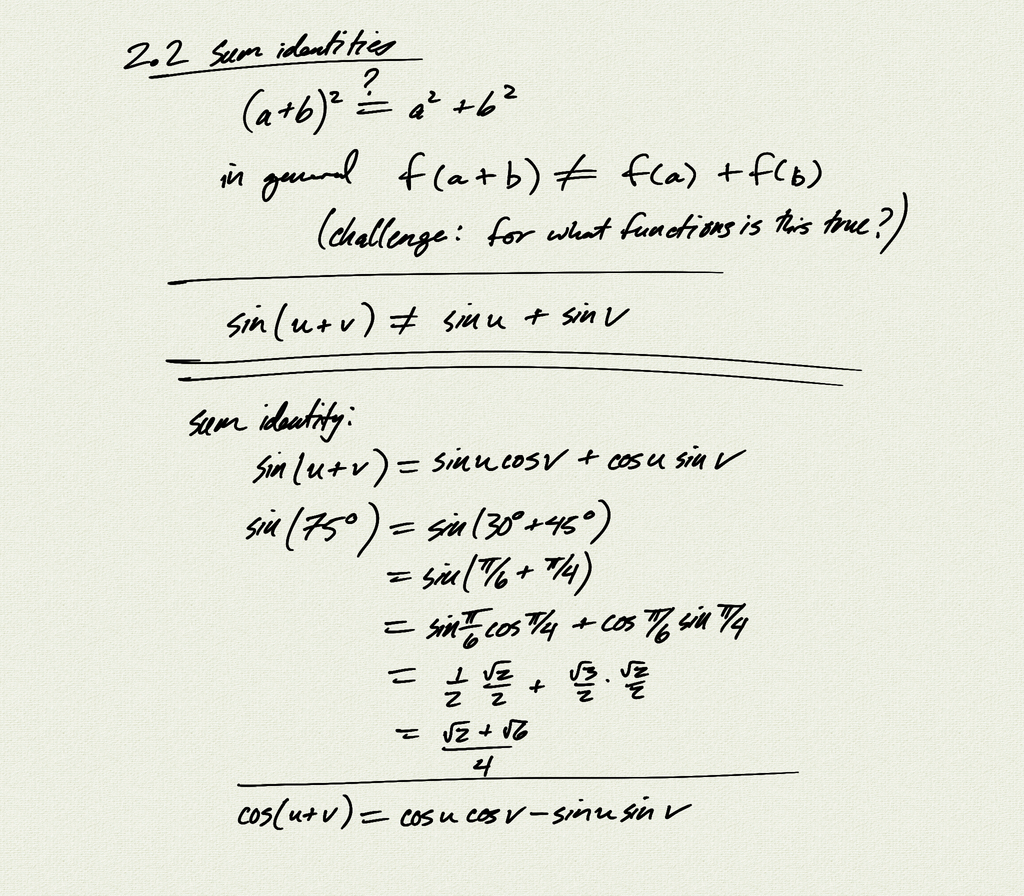 2.2 sum identities
(a+b)² ≟ a² + b²
in general f(a+b) ≠ f(a) + f(b)
(challenge: for what functions is this true?)
sin(u+v) ≠ sin u + sin v
sum identity:
sin(u+v) = sin u cos v + cos u sin v
sin(75°) = sin(30°+45°)
= sin(π/6 + π/4)
= sin π/6 cos π/4 + cos π/6 sin π/4
= 1/2 √2/2 + √3/2 · √2/2
= (√2 + √6)/4
cos(u+v) = cos u cos v − sin u sin v